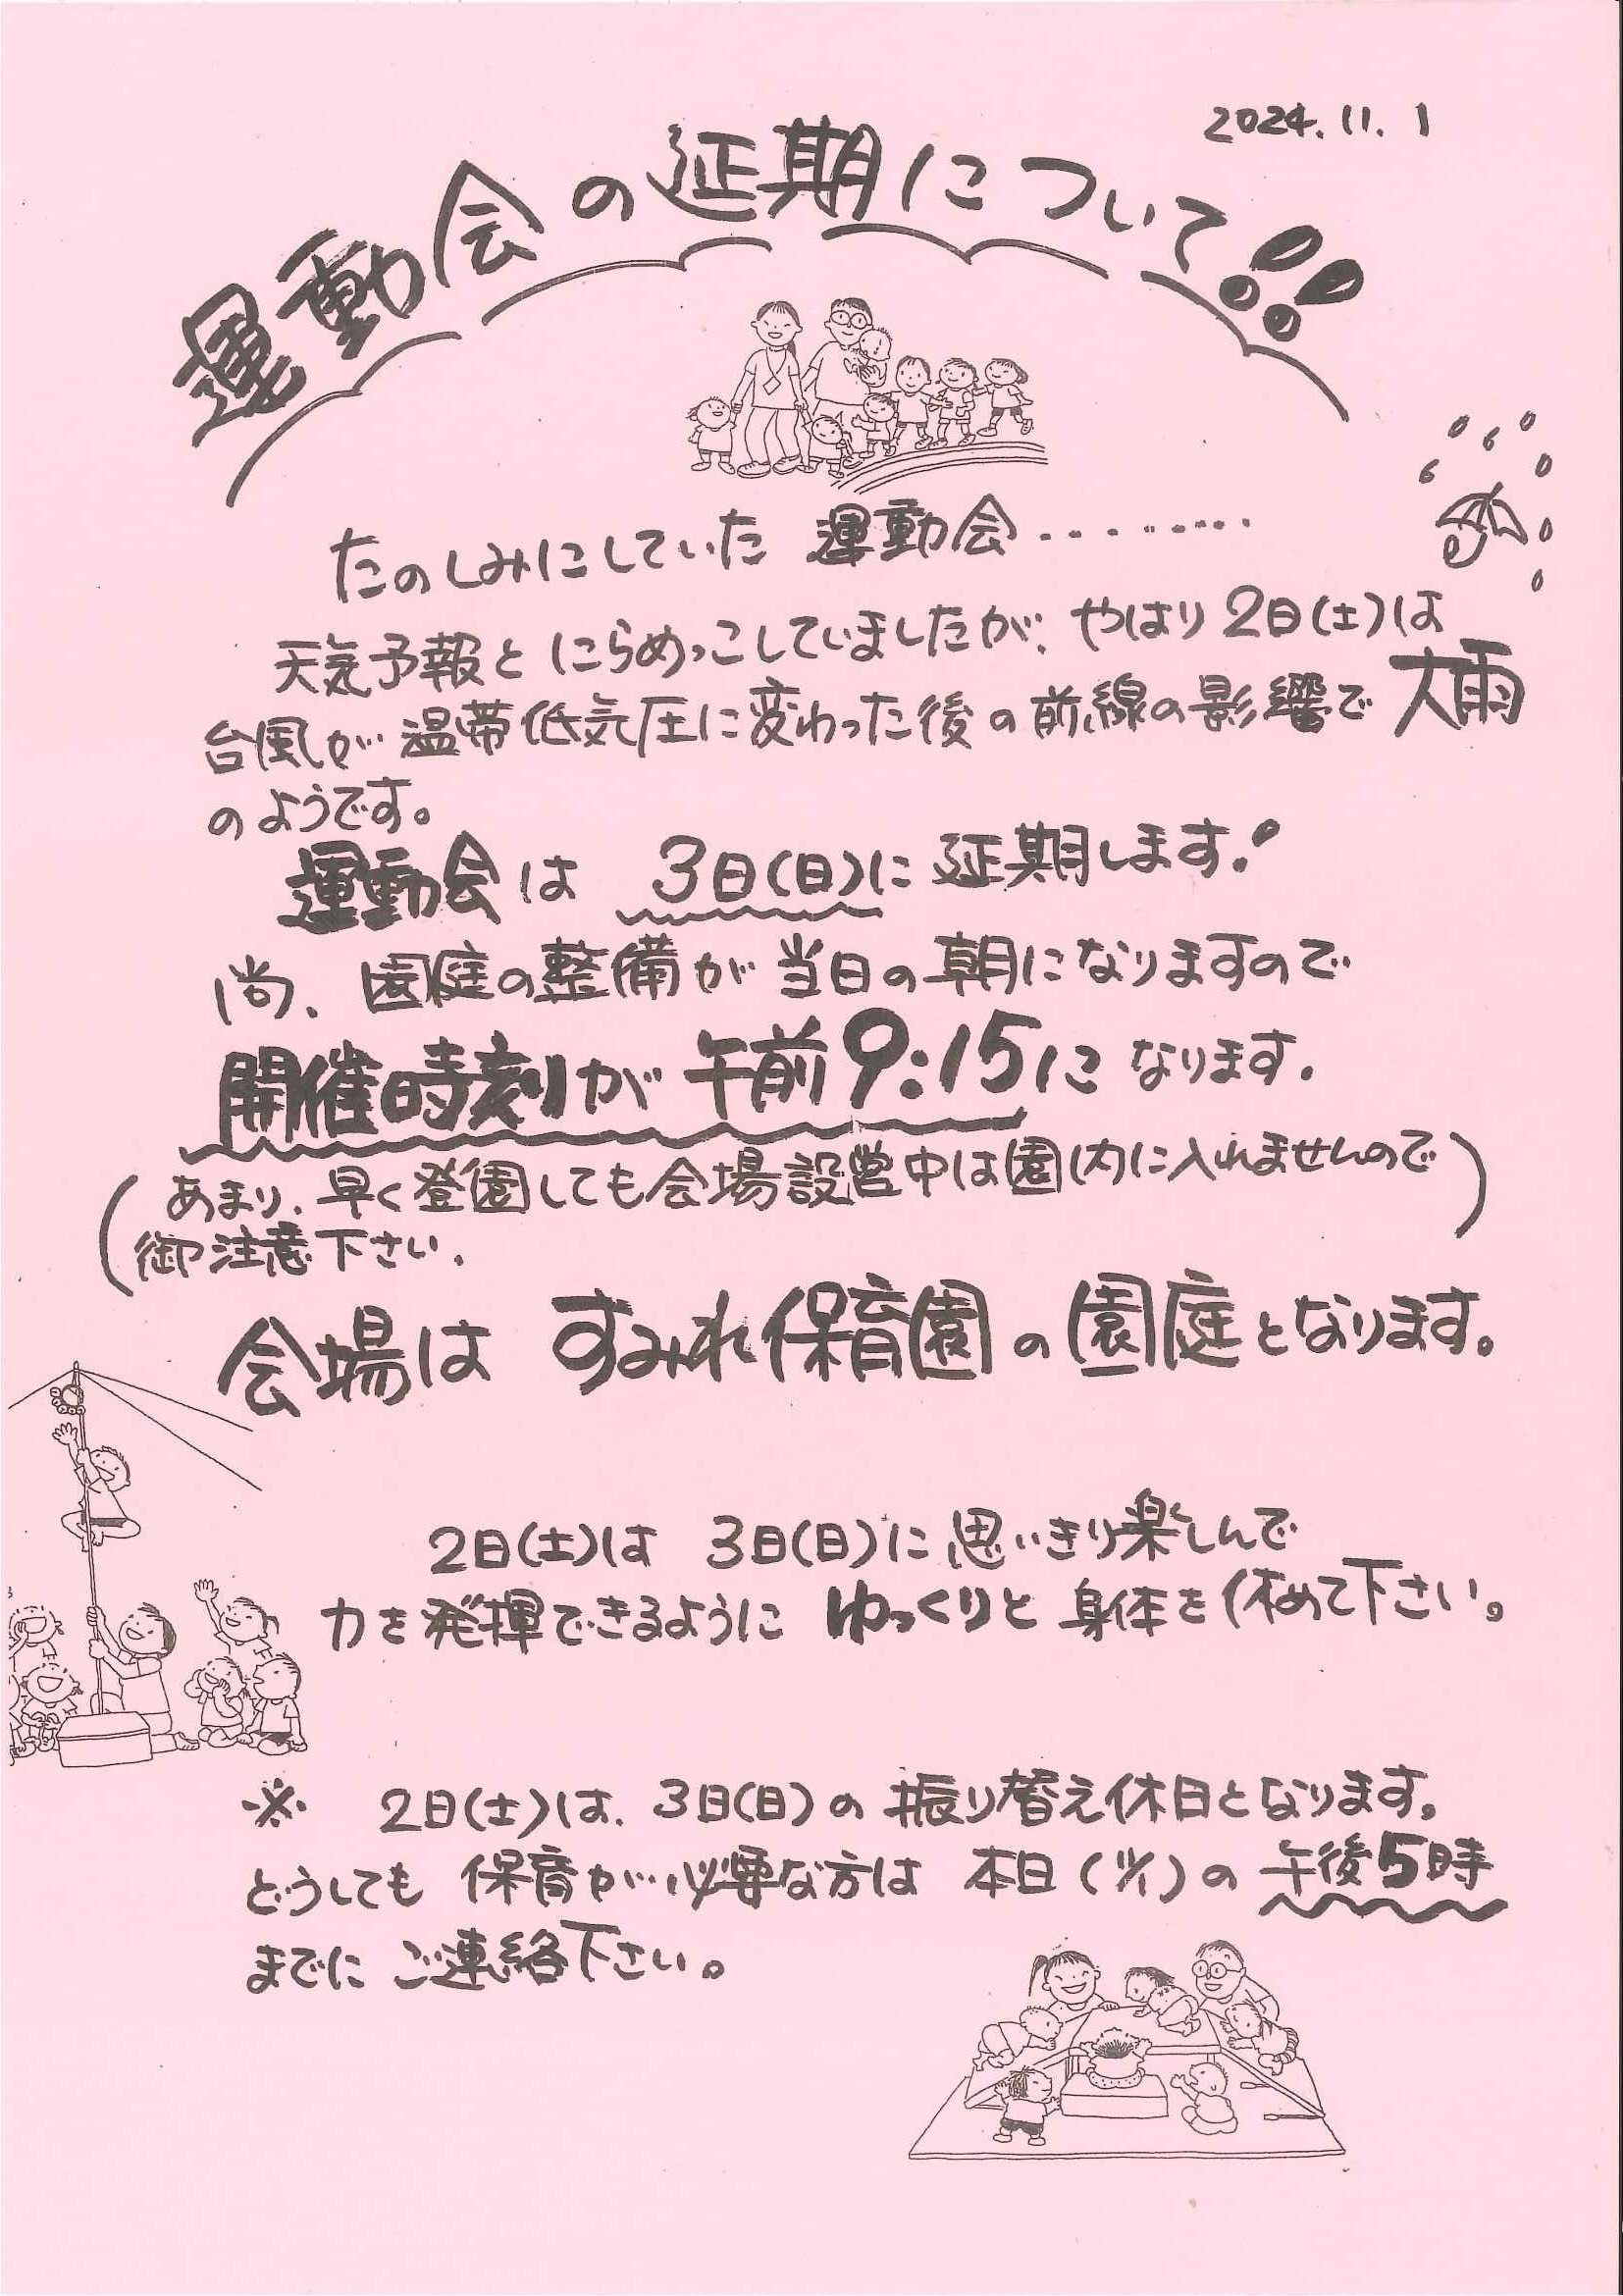 2024.11.1
運動会の延期について!!
たのしみにしていた 運動会………
天気予報と にらめっこしていましたが、やはり 2日(土)は
台風が 温帯低気圧に変わった後の前線の影響で 大雨
のようです。
運動会は 3日(日)に 延期します!
尚、園庭の整備が当日の朝になりますので
開催時刻が午前9:15に なります.
(あまり、早く登園しても会場設営中は園内に入れませんので
御注意下さい.)
会場は すみれ保育園の園庭となります。
2日(土)は 3日(日)に思いきり楽しんで
力を発揮できるように ゆっくりと 身体を休めて下さい。
※ 2日(土)は、3日(日)の 振り替え休日となります。
どうしても 保育が必要な方は 本日(11/1)の 午後5時
までに ご連絡下さい。